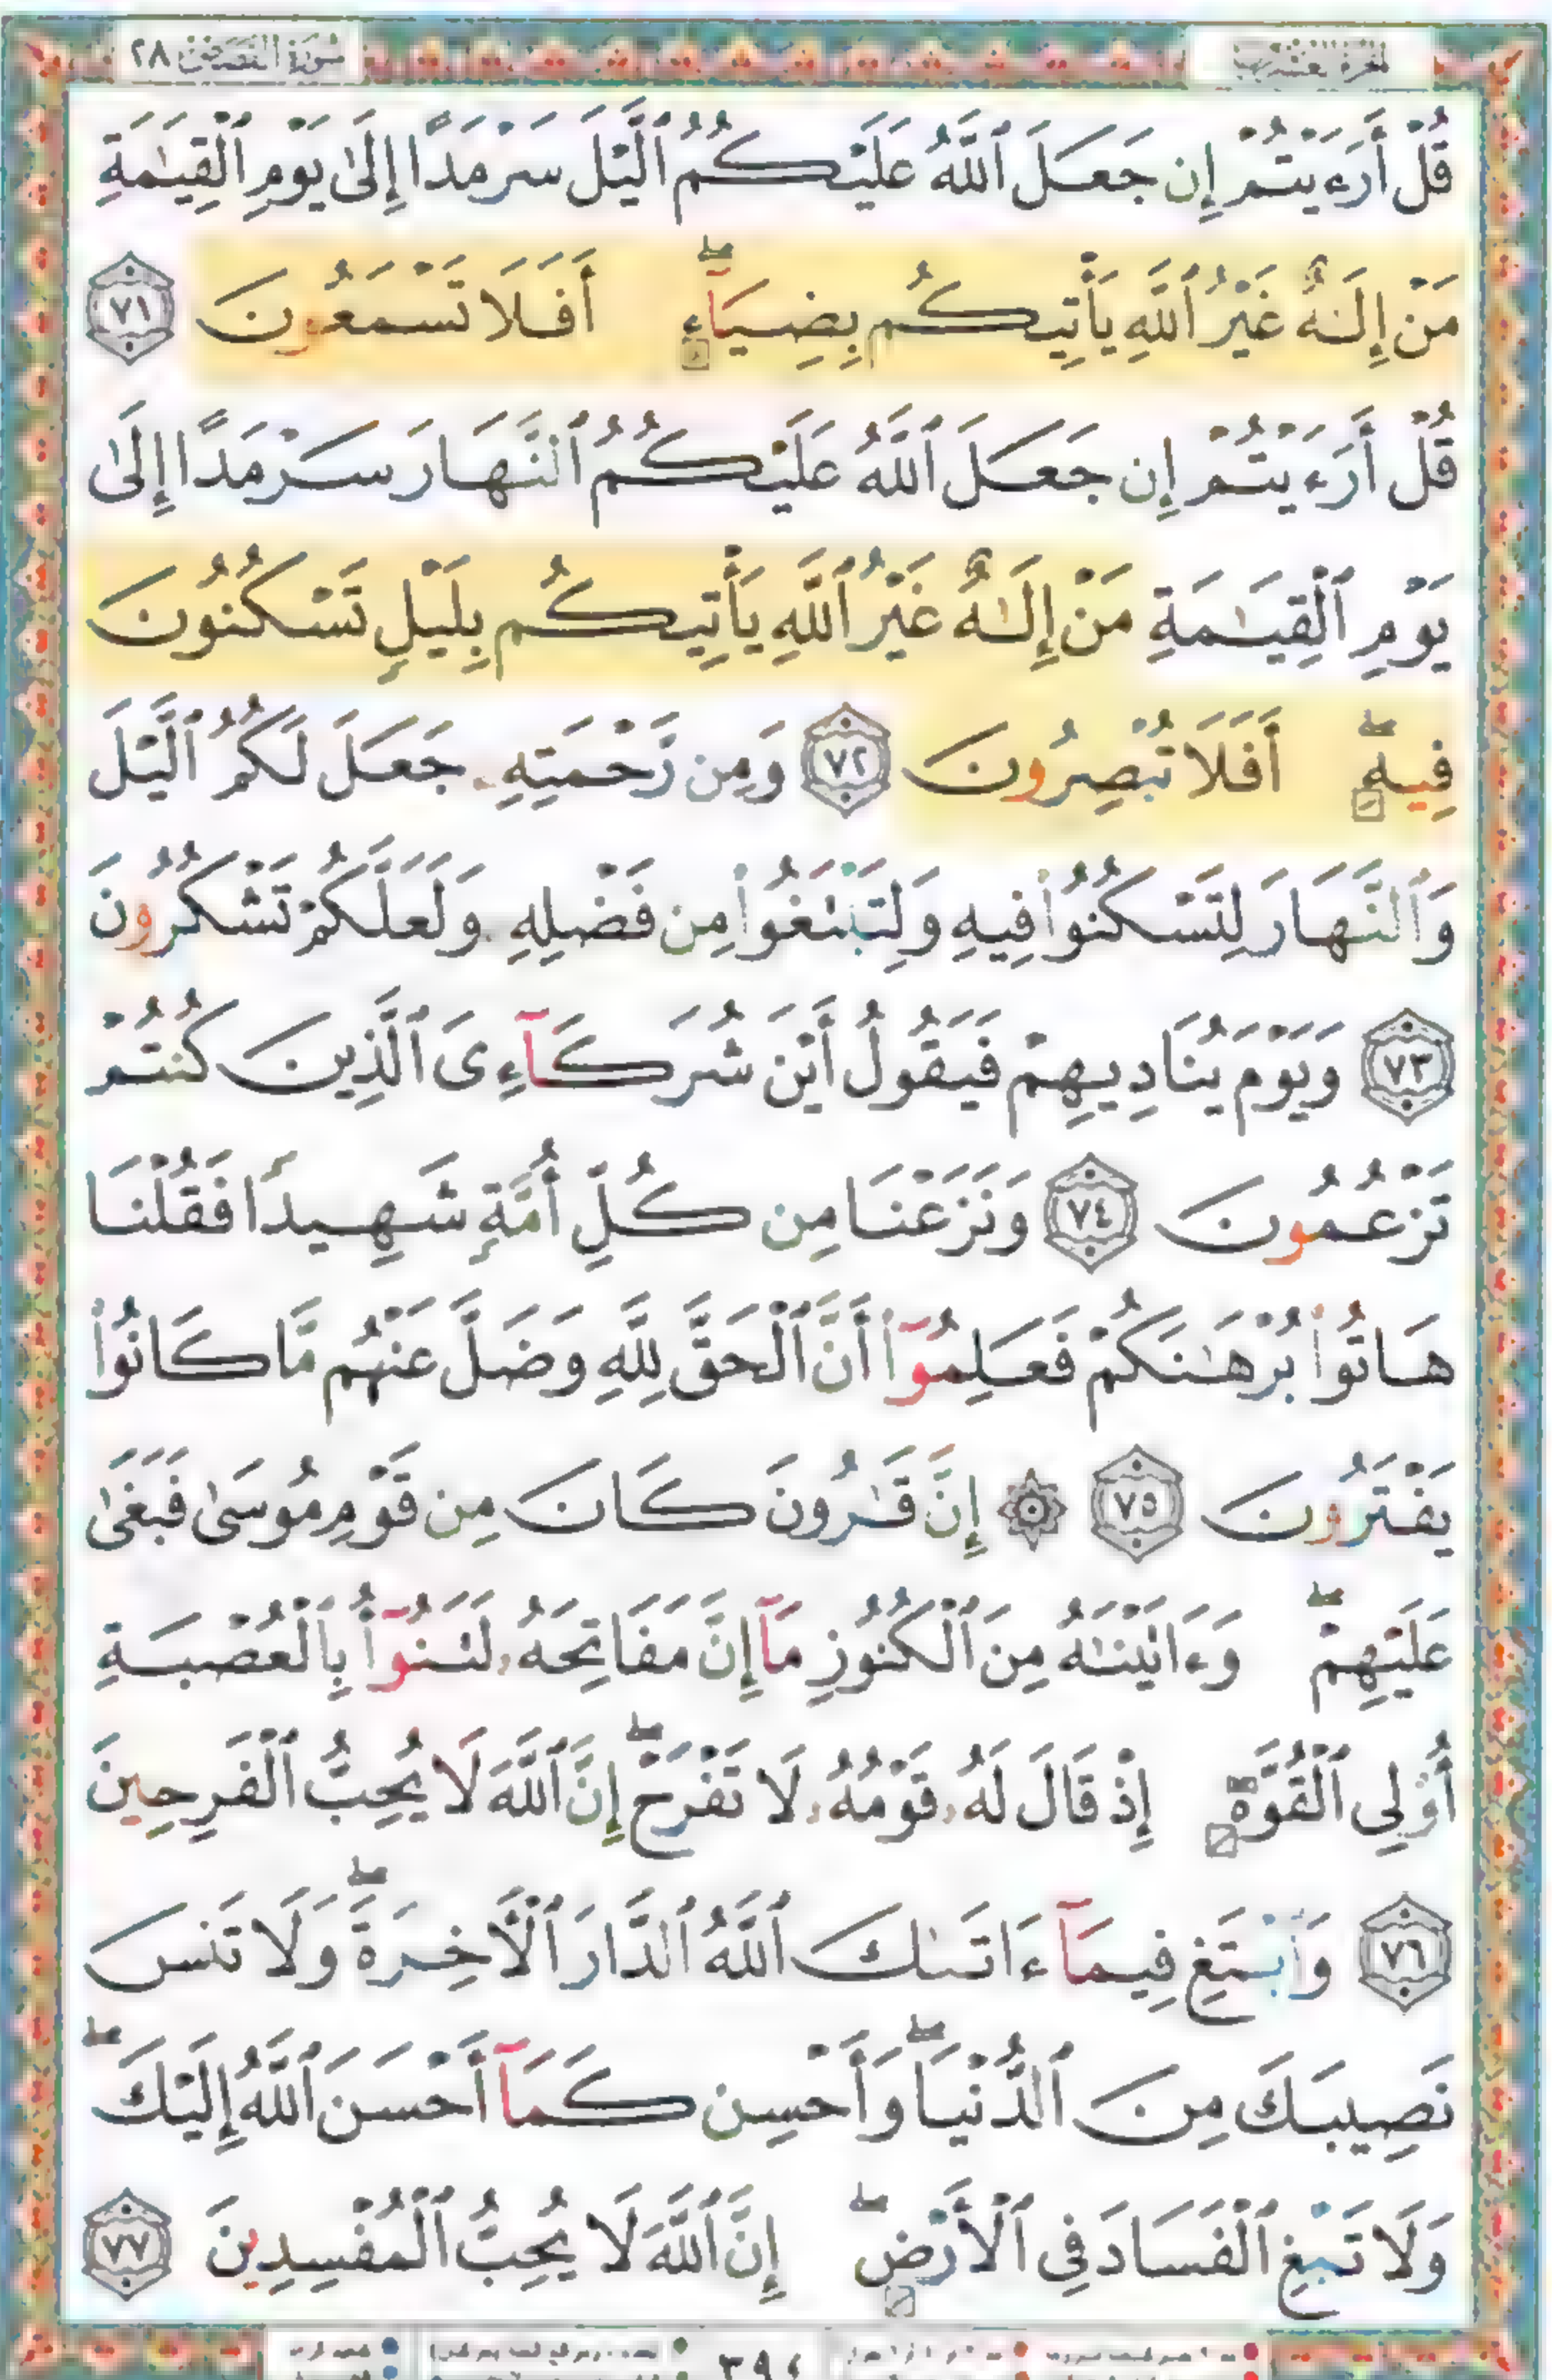 سورة القصص ٢٨
الجزء العشرون
قُلْ أَرَءَيْتُمْ إِن جَعَلَ ٱللَّهُ عَلَيْكُمُ ٱلَّيْلَ سَرْمَدًا إِلَىٰ يَوْمِ ٱلْقِيَٰمَةِ
مَنْ إِلَٰهٌ غَيْرُ ٱللَّهِ يَأْتِيكُم بِضِيَآءٍ ۖ أَفَلَا تَسْمَعُونَ ٧١
قُلْ أَرَءَيْتُمْ إِن جَعَلَ ٱللَّهُ عَلَيْكُمُ ٱلنَّهَارَ سَرْمَدًا إِلَىٰ
يَوْمِ ٱلْقِيَٰمَةِ مَنْ إِلَٰهٌ غَيْرُ ٱللَّهِ يَأْتِيكُم بِلَيْلٍ تَسْكُنُونَ
فِيهِ ۖ أَفَلَا تُبْصِرُونَ ٧٢ وَمِن رَّحْمَتِهِۦ جَعَلَ لَكُمُ ٱلَّيْلَ
وَٱلنَّهَارَ لِتَسْكُنُوا۟ فِيهِ وَلِتَبْتَغُوا۟ مِن فَضْلِهِۦ وَلَعَلَّكُمْ تَشْكُرُونَ
٧٣ وَيَوْمَ يُنَادِيهِمْ فَيَقُولُ أَيْنَ شُرَكَآءِىَ ٱلَّذِينَ كُنتُمْ
تَزْعُمُونَ ٧٤ وَنَزَعْنَا مِن كُلِّ أُمَّةٍ شَهِيدًا فَقُلْنَا
هَاتُوا۟ بُرْهَٰنَكُمْ فَعَلِمُوٓا۟ أَنَّ ٱلْحَقَّ لِلَّهِ وَضَلَّ عَنْهُم مَّا كَانُوا۟
يَفْتَرُونَ ٧٥ ۞ إِنَّ قَٰرُونَ كَانَ مِن قَوْمِ مُوسَىٰ فَبَغَىٰ
عَلَيْهِمْ ۖ وَءَاتَيْنَٰهُ مِنَ ٱلْكُنُوزِ مَآ إِنَّ مَفَاتِحَهُۥ لَتَنُوٓأُ بِٱلْعُصْبَةِ
أُو۟لِى ٱلْقُوَّةِ إِذْ قَالَ لَهُۥ قَوْمُهُۥ لَا تَفْرَحْ ۖ إِنَّ ٱللَّهَ لَا يُحِبُّ ٱلْفَرِحِينَ
٧٦ وَٱبْتَغِ فِيمَآ ءَاتَىٰكَ ٱللَّهُ ٱلدَّارَ ٱلْـَٔاخِرَةَ ۖ وَلَا تَنسَ
نَصِيبَكَ مِنَ ٱلدُّنْيَا ۖ وَأَحْسِن كَمَآ أَحْسَنَ ٱللَّهُ إِلَيْكَ ۖ
وَلَا تَبْغِ ٱلْفَسَادَ فِى ٱلْأَرْضِ ۖ إِنَّ ٱللَّهَ لَا يُحِبُّ ٱلْمُفْسِدِينَ ٧٧
٣٩٤